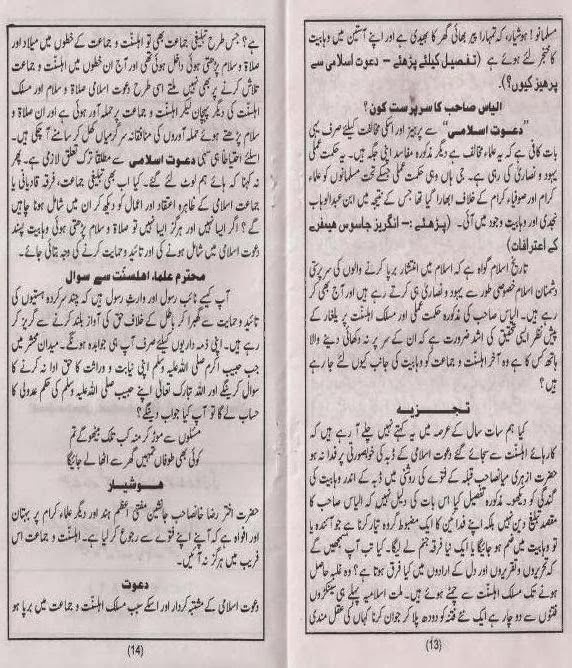 مسلمانو! ہوشیار، کہ تمہارا پیر بھائی گھر کا بھیدی ہے اور اپنے آستین میں وہابیت
کا خنجر لئے ہوئے ہے (تفصیل کیلئے پڑھئے - دعوت اسلامی سے
پرھیز کیوں؟)۔
الیاس صاحب کا سرپرست کون؟
"دعوت اسلامی" سے پرہیز اور اسکی مخالفت کیلئے صرف یہی
بات کافی ہے کہ یہ علماء مخالف ہے دیگر مذکورہ مفاسد اپنی جگہ ہیں۔ یہ حکمت عملی
یہود و نصاریٰ کی رہی ہے۔ جی ہاں وہی حکمت عملی جسکے تحت مسلمانوں کو علماء
کرام اور صوفیاء کرام کے خلاف ابھارا گیا تھا جس کے نتیجہ میں ابن عبدالوہاب
نجدی اور وہابیت وجود میں آئی۔ (پڑھئے :- انگریز جاسوس ھیمفرے
کے اعترافات)
تاریخ اسلام گواہ ہے کہ اسلام میں انتشار برپا کرنے والوں کی سرپرستی
دشمنان اسلام خصوصی طور سے یہود و نصاریٰ ہی کرتے رہے ہیں اور آج بھی کر
رہے ہیں۔ الیاس صاحب کی مذکورہ حکمت عملی اور مسلک اہلسنت پر یلغار کے
پیش نظر ایسی تحقیق کی اشد ضرورت ہے کہ ان کے سر پر نہ دکھائی دینے والا
ہاتھ کس کا ہے وہ آخر اہلسنت و جماعت کو وہابیت کی جانب کیوں لئے جا رہے
ہیں؟
تجزیہ
کیا ہم سات سال کے عرصہ میں یہ کہتے نہیں چلے آ رہے ہیں کہ
کارہائے اہلسنت سے سجائے گئے دعوت اسلامی کے ڈبہ کی خوبصورتی پر فدا نہ ہو
حضرت ازہری میاں صاحب قبلہ کے فتوے کی روشنی میں ڈبہ کے اندر وہابیت کی
گندگی کو دیکھو۔ مذکورہ تفصیل کیا اس بات کی دلیل نہیں کہ الیاس صاحب کا
مقصد تبلیغ دین نہیں بلکہ اپنے فدائین کا ایک مضبوط گروہ تیار کرنا ہے جو آئندہ یا
تو وہابیت میں ضم ہو جائیگا یا ایک نیا فرقہ جنم لے لیگا۔ کیا تب آپ سمجھیں گے
کہ تحریروں و تقریروں اور دل کے ارادوں میں کیا فرق ہوتا ہے؟ وہ غلبہ حاصل
ہونے تک مسلک اہلسنت سے چمٹے ہوئے ہیں۔ ملت اسلامیہ پہلے ہی سینکڑوں
فتنوں سے دوچار ہے ایک نئے فتنہ کو دودھ پلا کر جوان کرنا کہاں کی عقل مندی
(13)
ہے؟ جس طرح تبلیغی جماعت بھی تو اہلسنت و جماعت کے خطوں میں میلاد اور
صلاۃ و سلام پڑھتی ہوئی داخل ہوئی تھی اور آج ان خطوں میں اہلسنت و جماعت
تلاش کرنے پر بھی نہیں ملتے اسی طرح دعوت اسلامی صلاۃ و سلام اور مسلک
اہلسنت کی دیگر پہچان لیکر اہلسنت و جماعت پر حملہ آور ہوئی ہے اور ان صلاۃ و
سلام پڑھتے ہوئے حملہ آوروں کی منافقانہ سرگرمیاں کھل کر سامنے آ چکی ہیں۔
اسلئے احتیاطاً ہی سہی دعوت اسلامی سے مطلقاً ترک تعلق لازمی ہے۔ پھر
نہ کہنا کہ ہائے ہم لوٹ لئے گئے۔ کیا اب بھی تبلیغی جماعت، فرقہ قادیانی یا
جماعت اسلامی کے ظاہرہ اعتقاد اور اعمال کو دیکھ کر ان میں شامل ہونا چاہیں
گے؟ اگر ایسا نہیں اور ہرگز ایسا نہیں تو صلاۃ و سلام پڑھتی ہوئی وہابیت پسند
دعوت اسلامی میں شامل ہونے کی اور تائید و حمایت کرنے کی وجہ بتائی جائے۔
محترم علماء اھلسنت سے سوال
آپ کیسے نائب رسول اور وارث رسول ہیں کہ چند سرکردہ ہستیوں کی
تائید و حمایت سے گھبرا کر باطل کے خلاف حق کی آواز بلند کرنے سے گریز کر
رہے ہیں۔ اپنی ذمہ داریوں کیلئے صرف آپ ہی جوابدہ ہونگے۔ میدان محشر میں
جب حبیب اکرم صلی اللہ علیہ وسلم اپنی نیابت و وراثت کا حق ادا نہ کرنے کا
سوال کریں گے اور اللہ تبارک تعالیٰ اپنے حبیب صلی اللہ علیہ وسلم کی حکم عدولی کا
حساب لے گا تو آپ کیا جواب دینگے؟
مسئلوں سے موڑ کر منہ کب تک بیٹھو گے تم
کوئی بھی طوفان تمہیں گھر سے اٹھا لے جائیگا
ھوشیار
حضرت اختر رضا خانصاحب جانشین مفتی اعظم ہند اور دیگر علماء کرام پر بہتان
اور افواہ ہے کہ آپنے اپنے فتوے سے رجوع کر لیا ہے۔ اہلسنت و جماعت اس
فریب میں ہرگز نہ آئیں۔
دعوت
دعوت اسلامی کے مشتبہ کردار اور اسکے سبب مسلک اہلسنت و جماعت میں برپا ہو
(14)